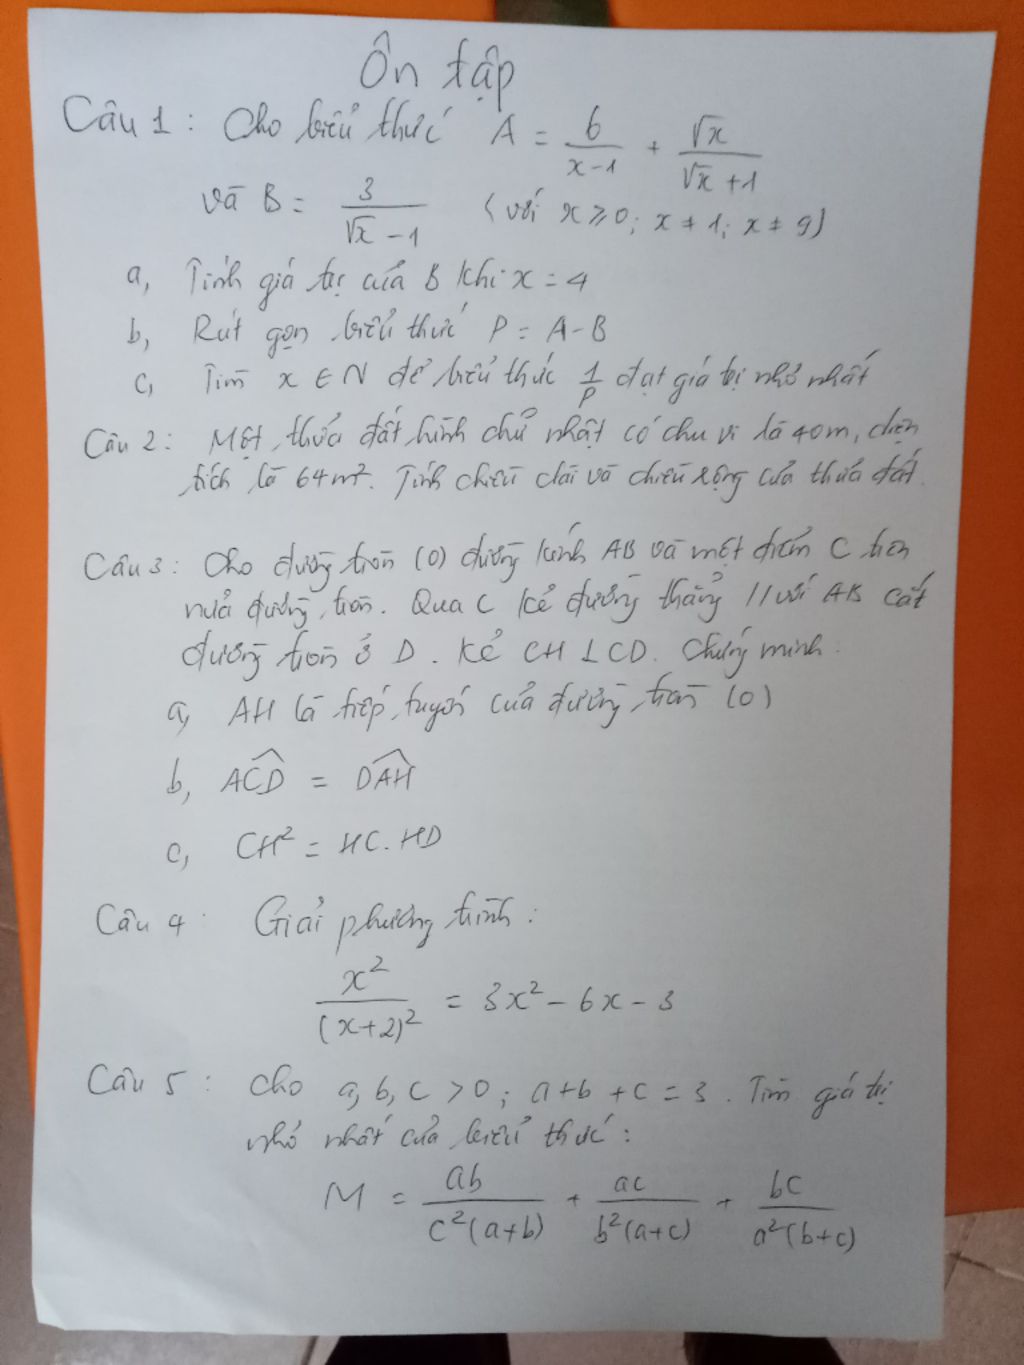 Ôn tập
Câu 1 : Cho biểu thức A = 6/(x-1) + √x/(√x+1)
và B = 3/(√x-1) (với x ≥ 0; x ≠ 1; x ≠ 9)
a, Tính giá trị của B khi x = 4
b, Rút gọn biểu thức P = A-B
c, Tìm x ∈ N để biểu thức 1/P đạt giá trị nhỏ nhất
Câu 2 : Một thửa đất hình chữ nhật có chu vi là 40m, diện
tích là 64m². Tính chiều dài và chiều rộng của thửa đất.
Câu 3 : Cho đường tròn (O) đường kính AB và một điểm C trên
nửa đường tròn. Qua C kẻ đường thẳng // với AB cắt
đường tròn ở D. Kẻ CH ⊥ CD. Chứng minh :
a, AH là tiếp tuyến của đường tròn (O)
b, ACD^ = DAH^
c, CH² = HC.HD
Câu 4 : Giải phương trình :
x²/(x+2)² = 3x² - 6x - 3
Câu 5 : Cho a, b, c > 0 ; a+b+c = 3. Tìm giá trị
nhỏ nhất của biểu thức :
M = ab/(c²(a+b)) + ac/(b²(a+c)) + bc/(a²(b+c))